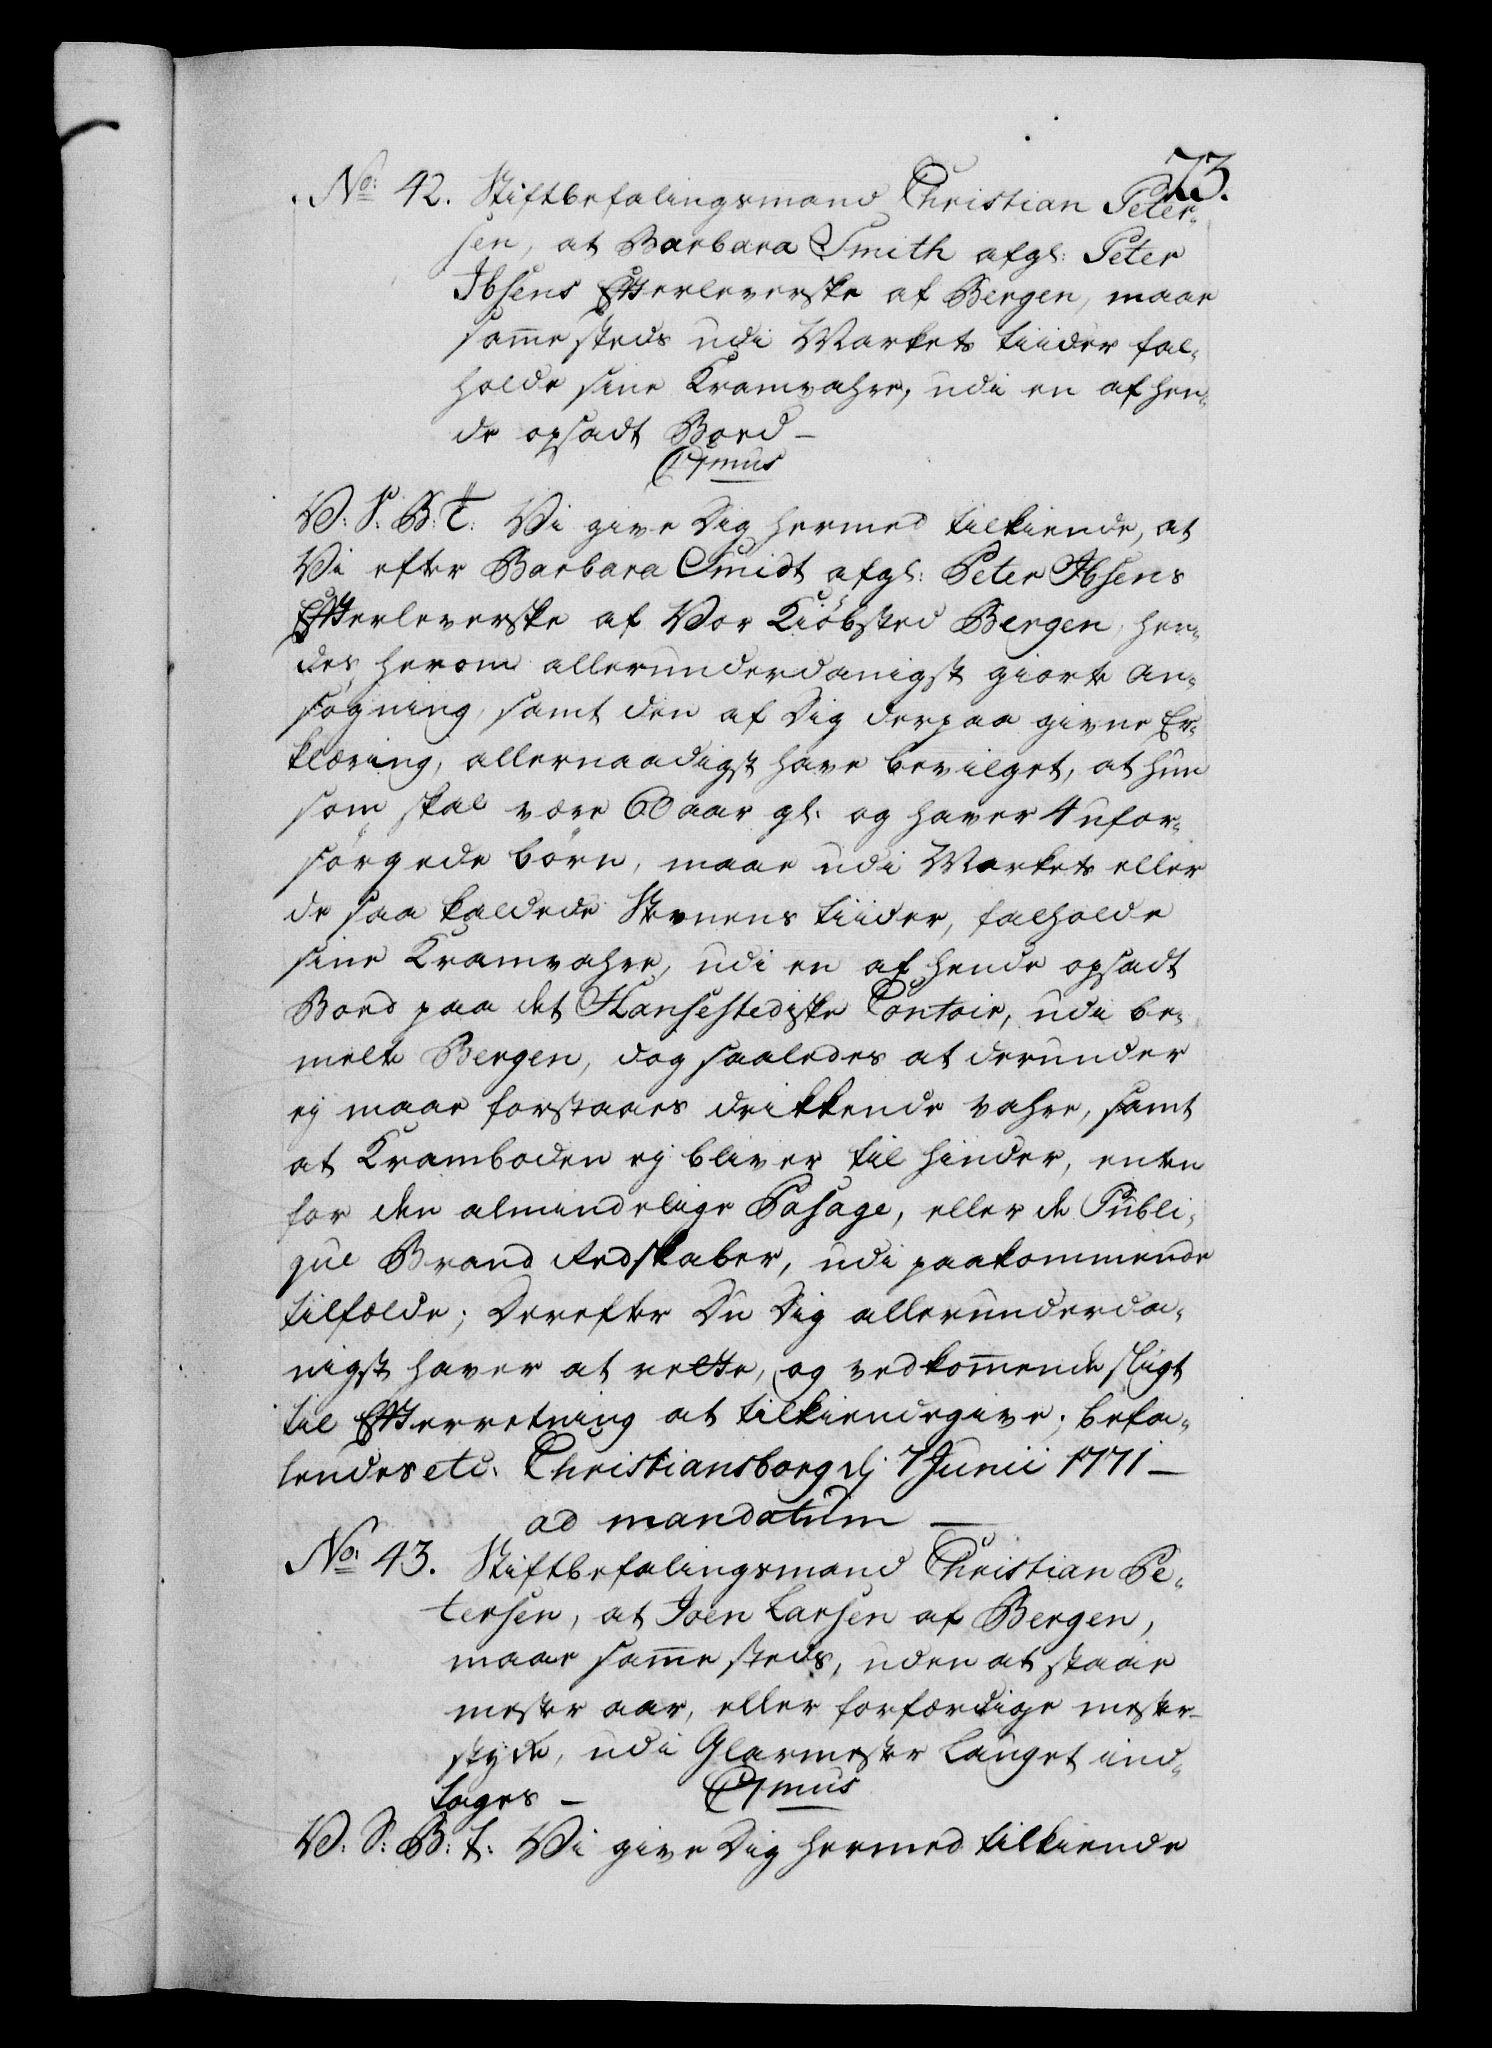 73.
No: 42. Stiftbefalingsmand Christian Peter-
sen, at Barbara Smith afgl: Peter
Ibsens Efterleverske af Bergen, maae
samme steds udi Markets tiider fal-
holde sine Kramvahre, udi en af hen-
de opsadt Boed —
C7mus
V: S: B: T: Vi give Dig hermed tilkiende, at
Vi efter Barbara Smidt afgl: Peter Ibsens
Efterleverske af Vor Kiöbsted Bergen, hen-
des herom allerunderdanigst giorte An-
søgning, samt den af Dig derpaa givne Er-
klæring, allernaadigst have bevilget, at hun
som skal være 60 aar gl. og haver 4 ufor-
sørgede børn, maae udi Markets eller
de saa kaldede Stevnens tiider, falholde
sine Kramvahre, udi en af hende opsadt
Boed paa det Hansestediske Contoir, udi be-
melte Bergen, dog saaledes at derunder
ej maae forstaaes drikkende vahre, samt
at Kramboden ej bliver til hinder, enten
for den almindelige Pasage, eller de Publi-
que Brand Redskaber, udi paakommende
tilfælde; Derefter Du Dig allerunderda-
nigst haver at rette, og vedkommende sligt
til Efterretning at tilkiendegive; befa-
lendes etc. Christiansborg dj 7 Junii 1771 —
ad mandatum —
No: 43. Stiftbefalingsmand Christian Pe-
tersen, at Joen Larsen af Bergen,
maae samme steds, uden at staae
mester aar, eller forfærdige mester-
stycke, udi Glarmester Lauget ind-
tages — C7mus
V: S: B: T. Vi give Dig hermed tilkiende